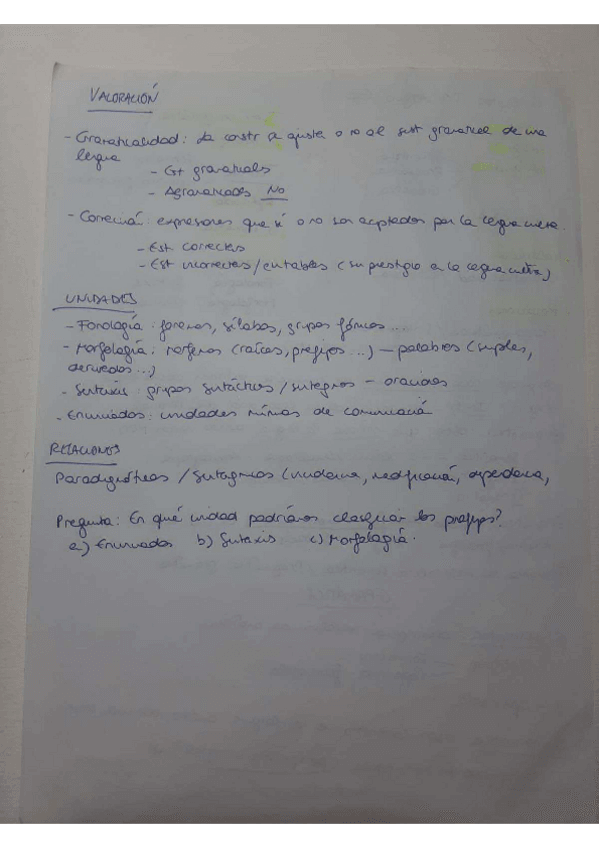 VALORACIÓN
- Gramaticalidad: La constr se ajusta o no al sist gramatical de una
lengua
- Gr gramaticales
- Agramaticales No
- Corrección: expresiones que sí o no son aceptadas por la lengua culta.
- Est correctas
- Est incorrectas/evitables (sin prestigio en la lengua culta)
UNIDADES
- Fonología: fonemas, sílabas, grupos fónicos ...
- Morfología: morfemas (raíces, prefijos ...) - palabras (simples,
derivadas ...)
- Sintaxis: grupos sintácticos / sintagmas - oraciones
- Enunciados: unidades mínimas de comunicación
RELACIONES
Paradigmáticas / Sintagmas (incidencia, modificación, dependencia,
Pregunta: En qué unidad podríamos clasificar los prefijos?
a) Enunciados b) Sintaxis c) Morfología.